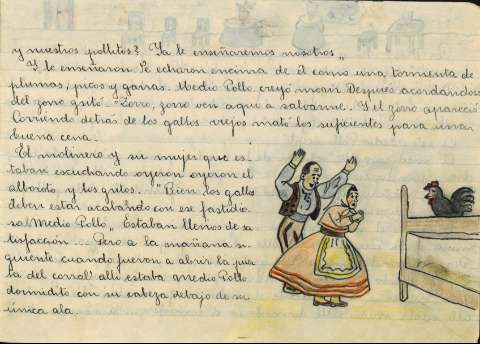 y nuestros pollitos? Ya le enseñaremos nosotros"
Y le enseñaron. Se echaron encima de él como una tormenta de
plumas, picos y garras. Medio Pollo creyó morir. Después acordándose
del zorro gritó. "Zorro, zorro ven aquí a salvarme. Y el zorro apareció
Corriendo detrás de los gallos viejos mató los suficientes para una
buena cena.
El molinero y su mujer que es-
taban escuchando oyeron oyeron el
alboroto y los gritos. "Bien los gallos
deben estar acabando con ese fastidio
so Medio Pollo". Estaban llenos de sa
tisfacción... Pero a la mañana si
guiente cuando fueron a abrir la puer
ta del corral allí estaba Medio Pollo
dormidito con su cabeza debajo de su
única ala.